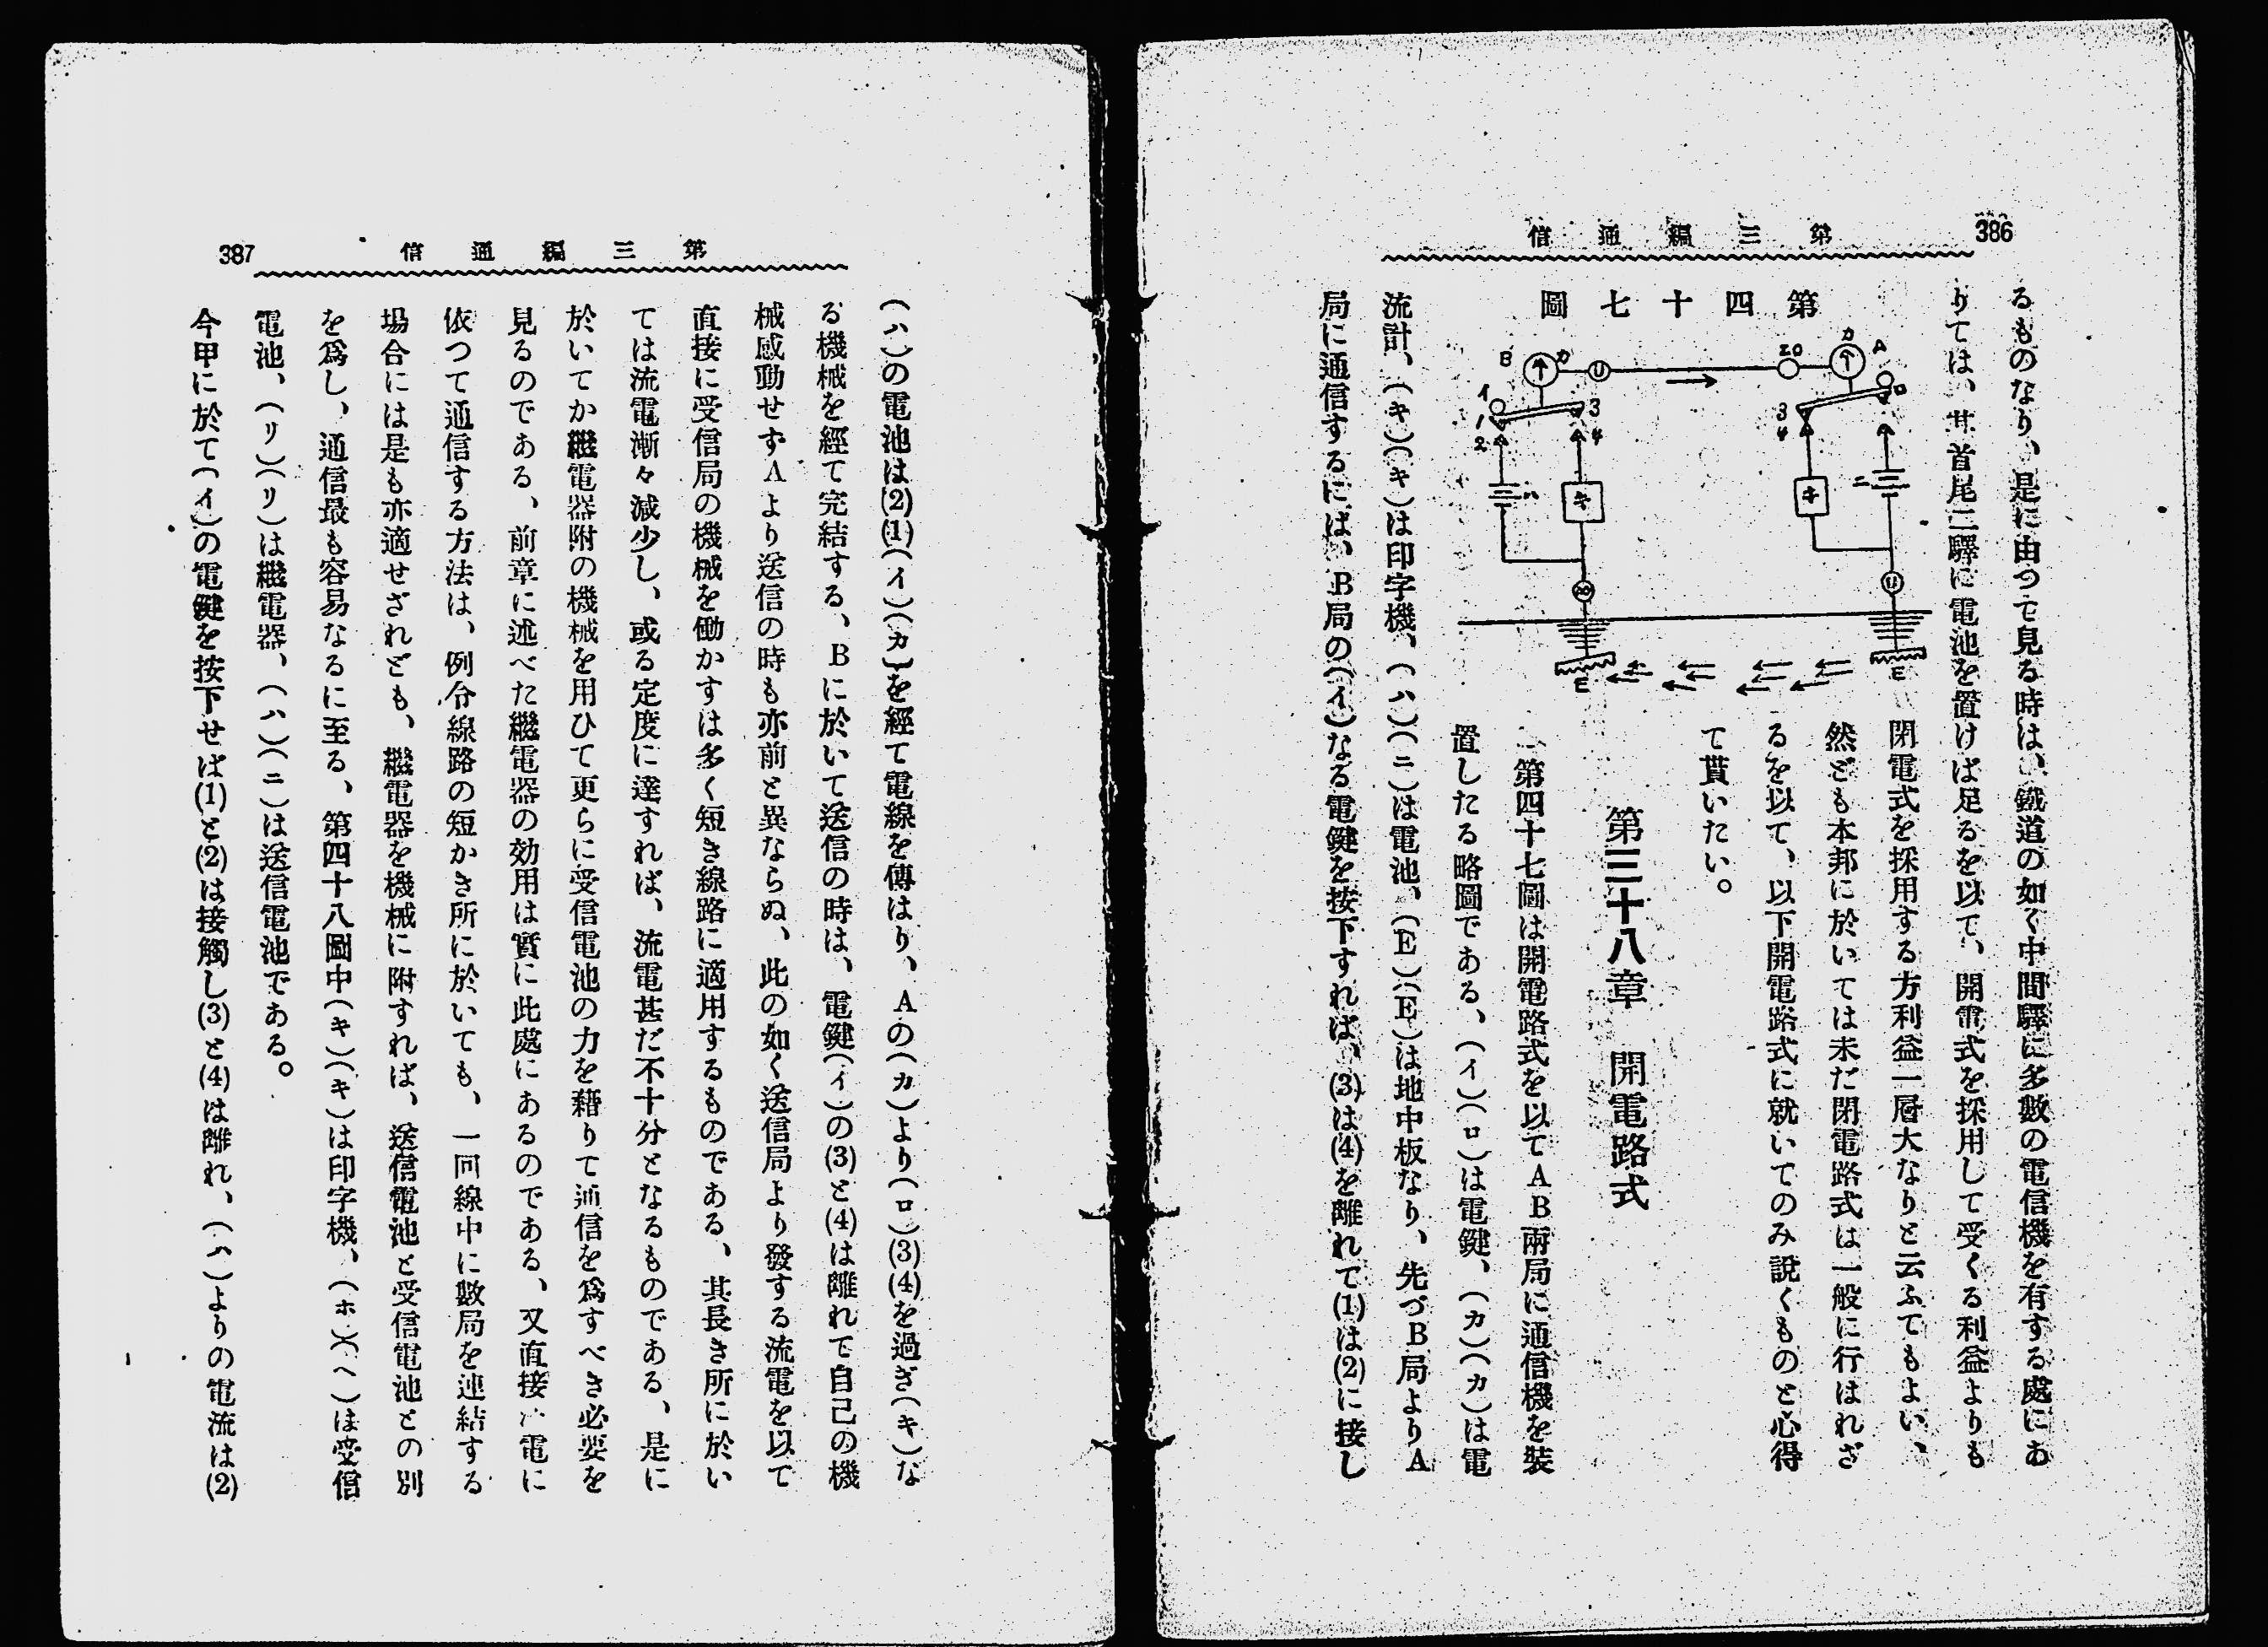 386
第三編通信
るものなり、是に由つて見る時は、鐵道の如く中間驛に多數の電信機を有する處にあ
りては、其首尾二驛に電池を置けば足るを以て、開電式を採用して受くる利益よりも
閉電式を採用する方利益一層大なりと云ふてもよい、
然ども本邦に於いては未だ閉電路式は一般に行はれざ
るを以て、以下開電路式に就いてのみ說くものと心得
て貰いたい。
第四十七圖
B
カ
U
20
カ
A
イ
1
2
3
4
ロ
3
4
ハ
キ
キ
ニ
20
U
E
E
第三十八章　開電路式
第四十七圖は開電路式を以てAB兩局に通信機を裝
置したる略圖である、(イ)(ロ)は電鍵、(カ)(カ)は電
流計、(キ)(キ)は印字機、(ハ)(ニ)は電池、(E)(E)は地中板なり、先づB局よりA
局に通信するには、B局の(イ)なる電鍵を按下すれば、(3)は(4)を離れて(1)は(2)に接し
387
第三編通信
(ハ)の電池は(2)(1)(イ)(カ)を經て電線を傳はり、Aの(カ)より(ロ)(3)(4)を過ぎ(キ)な
る機械を經て完結する、Bに於いて送信の時は、電鍵(イ)の(3)と(4)は離れて自己の機
械感動せずAより送信の時も亦前と異ならぬ、此の如く送信局より發する流電を以て
直接に受信局の機械を働かすは多く短き線路に適用するものである、其長き所に於い
ては流電漸々減少し、或る定度に達すれば、流電甚だ不十分となるものである、是に
於いてか繼電器附の機械を用ひて更らに受信電池の力を藉りて通信を爲すべき必要を
見るのである、前章に述べた繼電器の効用は實に此處にあるのである、又直接電に
依つて通信する方法は、例令線路の短かき所に於いても、一回線中に數局を連結する
場合には是も亦適せざれども、繼電器を機械に附すれば、送信電池と受信電池との別
を爲し、通信最も容易なるに至る、第四十八圖中(キ)(キ)は印字機、(ホ)(ヘ)は受信
電池、(リ)(リ)は繼電器、(ハ)(ニ)は送信電池である。
今甲に於て(イ)の電鍵を按下せば(1)と(2)は接觸し(3)と(4)は離れ、(ハ)よりの電流は(2)